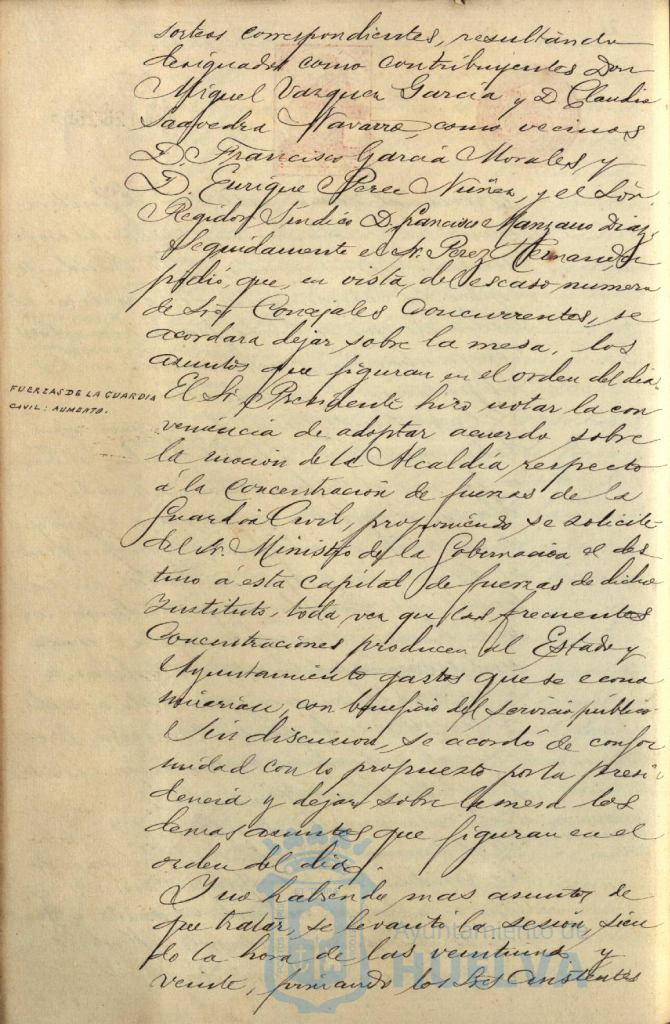 sorteos correspondientes, resultando
designados como contribuyentes Don
Miguel Vazquez García y D. Claudio
Saavedra Navarro, como vecinos
D. Francisco García Morales, y
D. Enrique Perez Nuñez, y el Sór.
Regidor Síndico D. Francisco Manzano Diaz.
Seguidamente el Sr. Perez Hernandez
pidió, que, en vista, del escaso numero
de Sres Concejales Concurrentes, se
acordara dejar sobre la mesa, los
asuntos que figuran en el orden del dia.
FUERZAS DE LA GUARDIA
CIVIL: AUMENTO.
El Sr. Presidente hizo notar la con
veniencia de adoptar acuerdo sobre
la mocion de la Alcaldía respecto
á la concentración de fuerzas de la
Guardia Civil, proponiendo se solicite
del Sr. Ministro de la Gobernacion el des
tino á esta capital de fuerzas de dicho
Instituto, toda vez que las frecuentes
Concentraciones producen al Estado y
Ayuntamiento gastos que se econo
mizarian, con beneficio del servicio público.
Sin discusion, se acordó de confor
midad con lo propuesto por la Presi
dencia y dejar sobre la mesa los
demas asuntos que figuran en el
orden del dia.
Y no habiendo mas asuntos de
que tratar, se levantó la sesión, sien
do la hora de las veintiuna y
veinte, firmando los Sres Asistentes
Ayuntamiento de
HUELVA